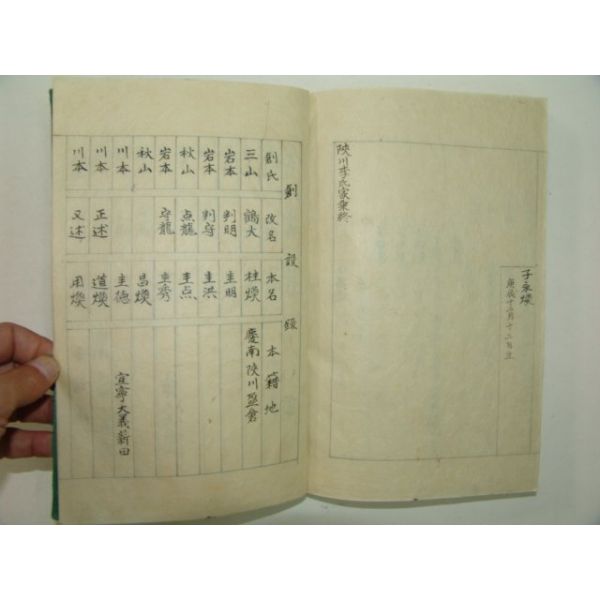 子永煥
庚辰十二月十二日生
陜川李氏家乗終
創設錄
創氏 改名 本名 本籍地
三山 鶴大 桂煥 慶南陜川盈倉
岩本 判明 圭明
岩本 判守 圭洪
秋山 点龍 圭点
岩本 守龍 圭秀
秋山 昌煥
川本 圭德 宜寧大義新田
川本 正述 道煥
川本 又述 用煥